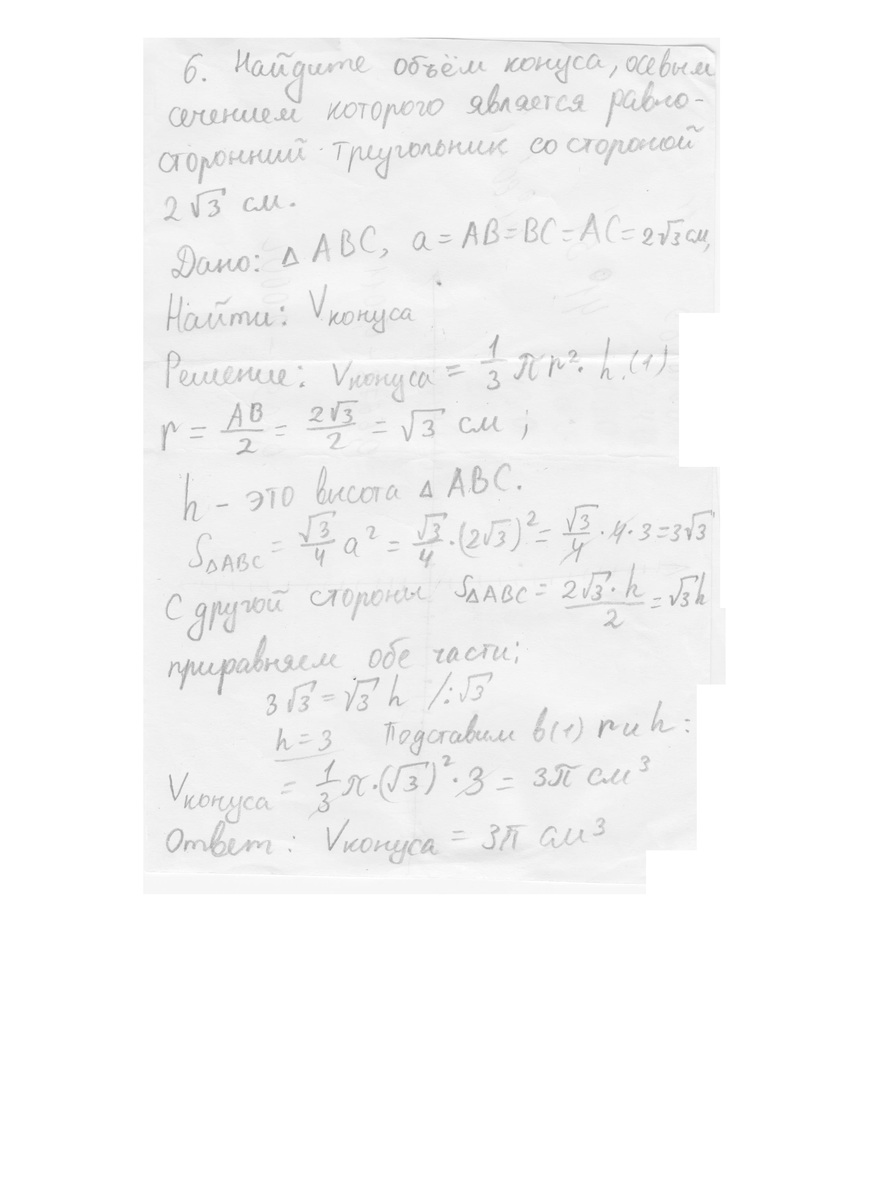 6. Найдите объём конуса, осевым
сечением которого является равно-
сторонний треугольник со стороной
2√3 см.
Дано: Δ ABC, a = AB = BC = AC = 2√3 см,
Найти: Vконуса
Решение: Vконуса = 1/3 π r² · h (1)
r = AB/2 = 2√3/2 = √3 см ;
h - это высота Δ ABC.
SΔABC = √3/4 a² = √3/4 · (2√3)² = √3/4 · 4 · 3 = 3√3
С другой стороны SΔABC = 2√3 · h/2 = √3h
приравняем обе части;
3√3 = √3 h /:√3
h = 3 Подставим в (1) r и h :
Vконуса = 1/3 π · (√3)² · 3 = 3π см³
Ответ: Vконуса = 3π см³